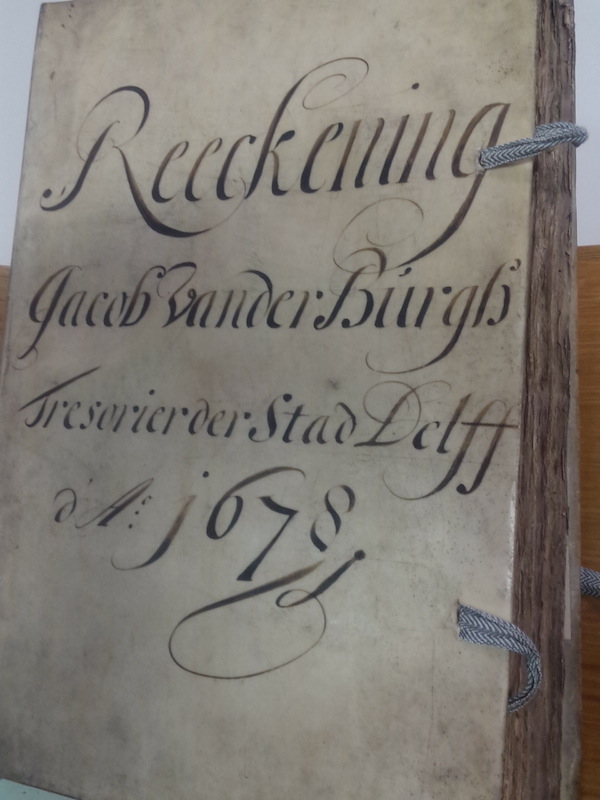 Reeckening
Jacob vander Búrgh
Tresorier der Stad Delff
d'A.º 1678